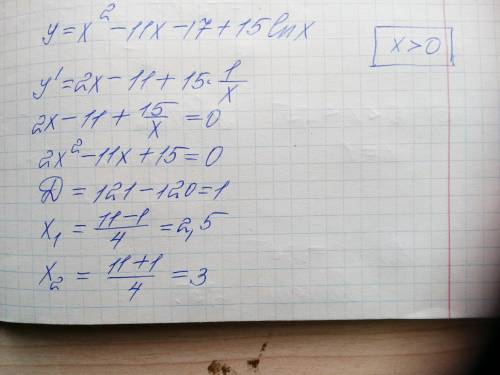 y = x² - 11x - 17 + 15 ln x
x > 0
y' = 2x - 11 + 15 · 1/x
2x - 11 + 15/x = 0
2x² - 11x + 15 = 0
D = 121 - 120 = 1
x₁ = (11 - 1)/4 = 2,5
x₂ = (11 + 1)/4 = 3